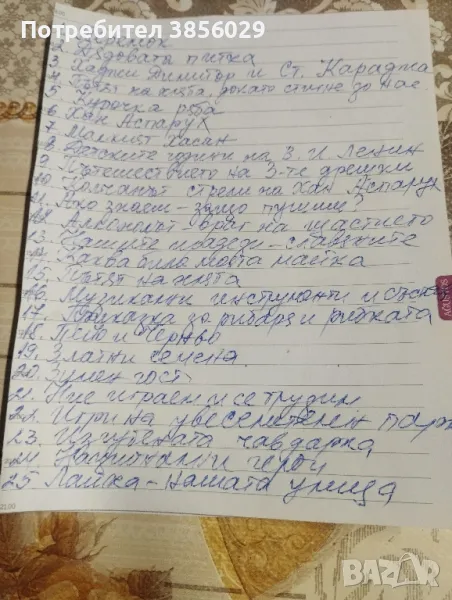 Потребител 3856029
2. Дядовата питка
3. Хаджи Димитър и Ст. Караджа
4. Пътят на хляба, докато стигне до нас
5. Курочка ряба
6. Хан Аспарух
7. Малкият Хасан
8. Детските години на В. И Ленин
9. Пътешествието на 3-те дрешки
10. Колчанът стрели на Хан Аспарух
11. Ако знаем - защо пушим?
12. Алкохолът враг на щастието
13. Нашите прадеди - славяните
14. Каква била моята майка
15. Пътят на хляба
16. Музикални инструменти и
17. Приказка за рибаря и рибката
18. Пейо и Черньо
19. Златни семена
20. Зимен гост
21. Ние играем и се трудим
22. Игри на увеселителен парк
23. Изгубената чавдарка
24. Национални герои
25 Лайка - нашата улица
AUGUSTUS
BAZAR